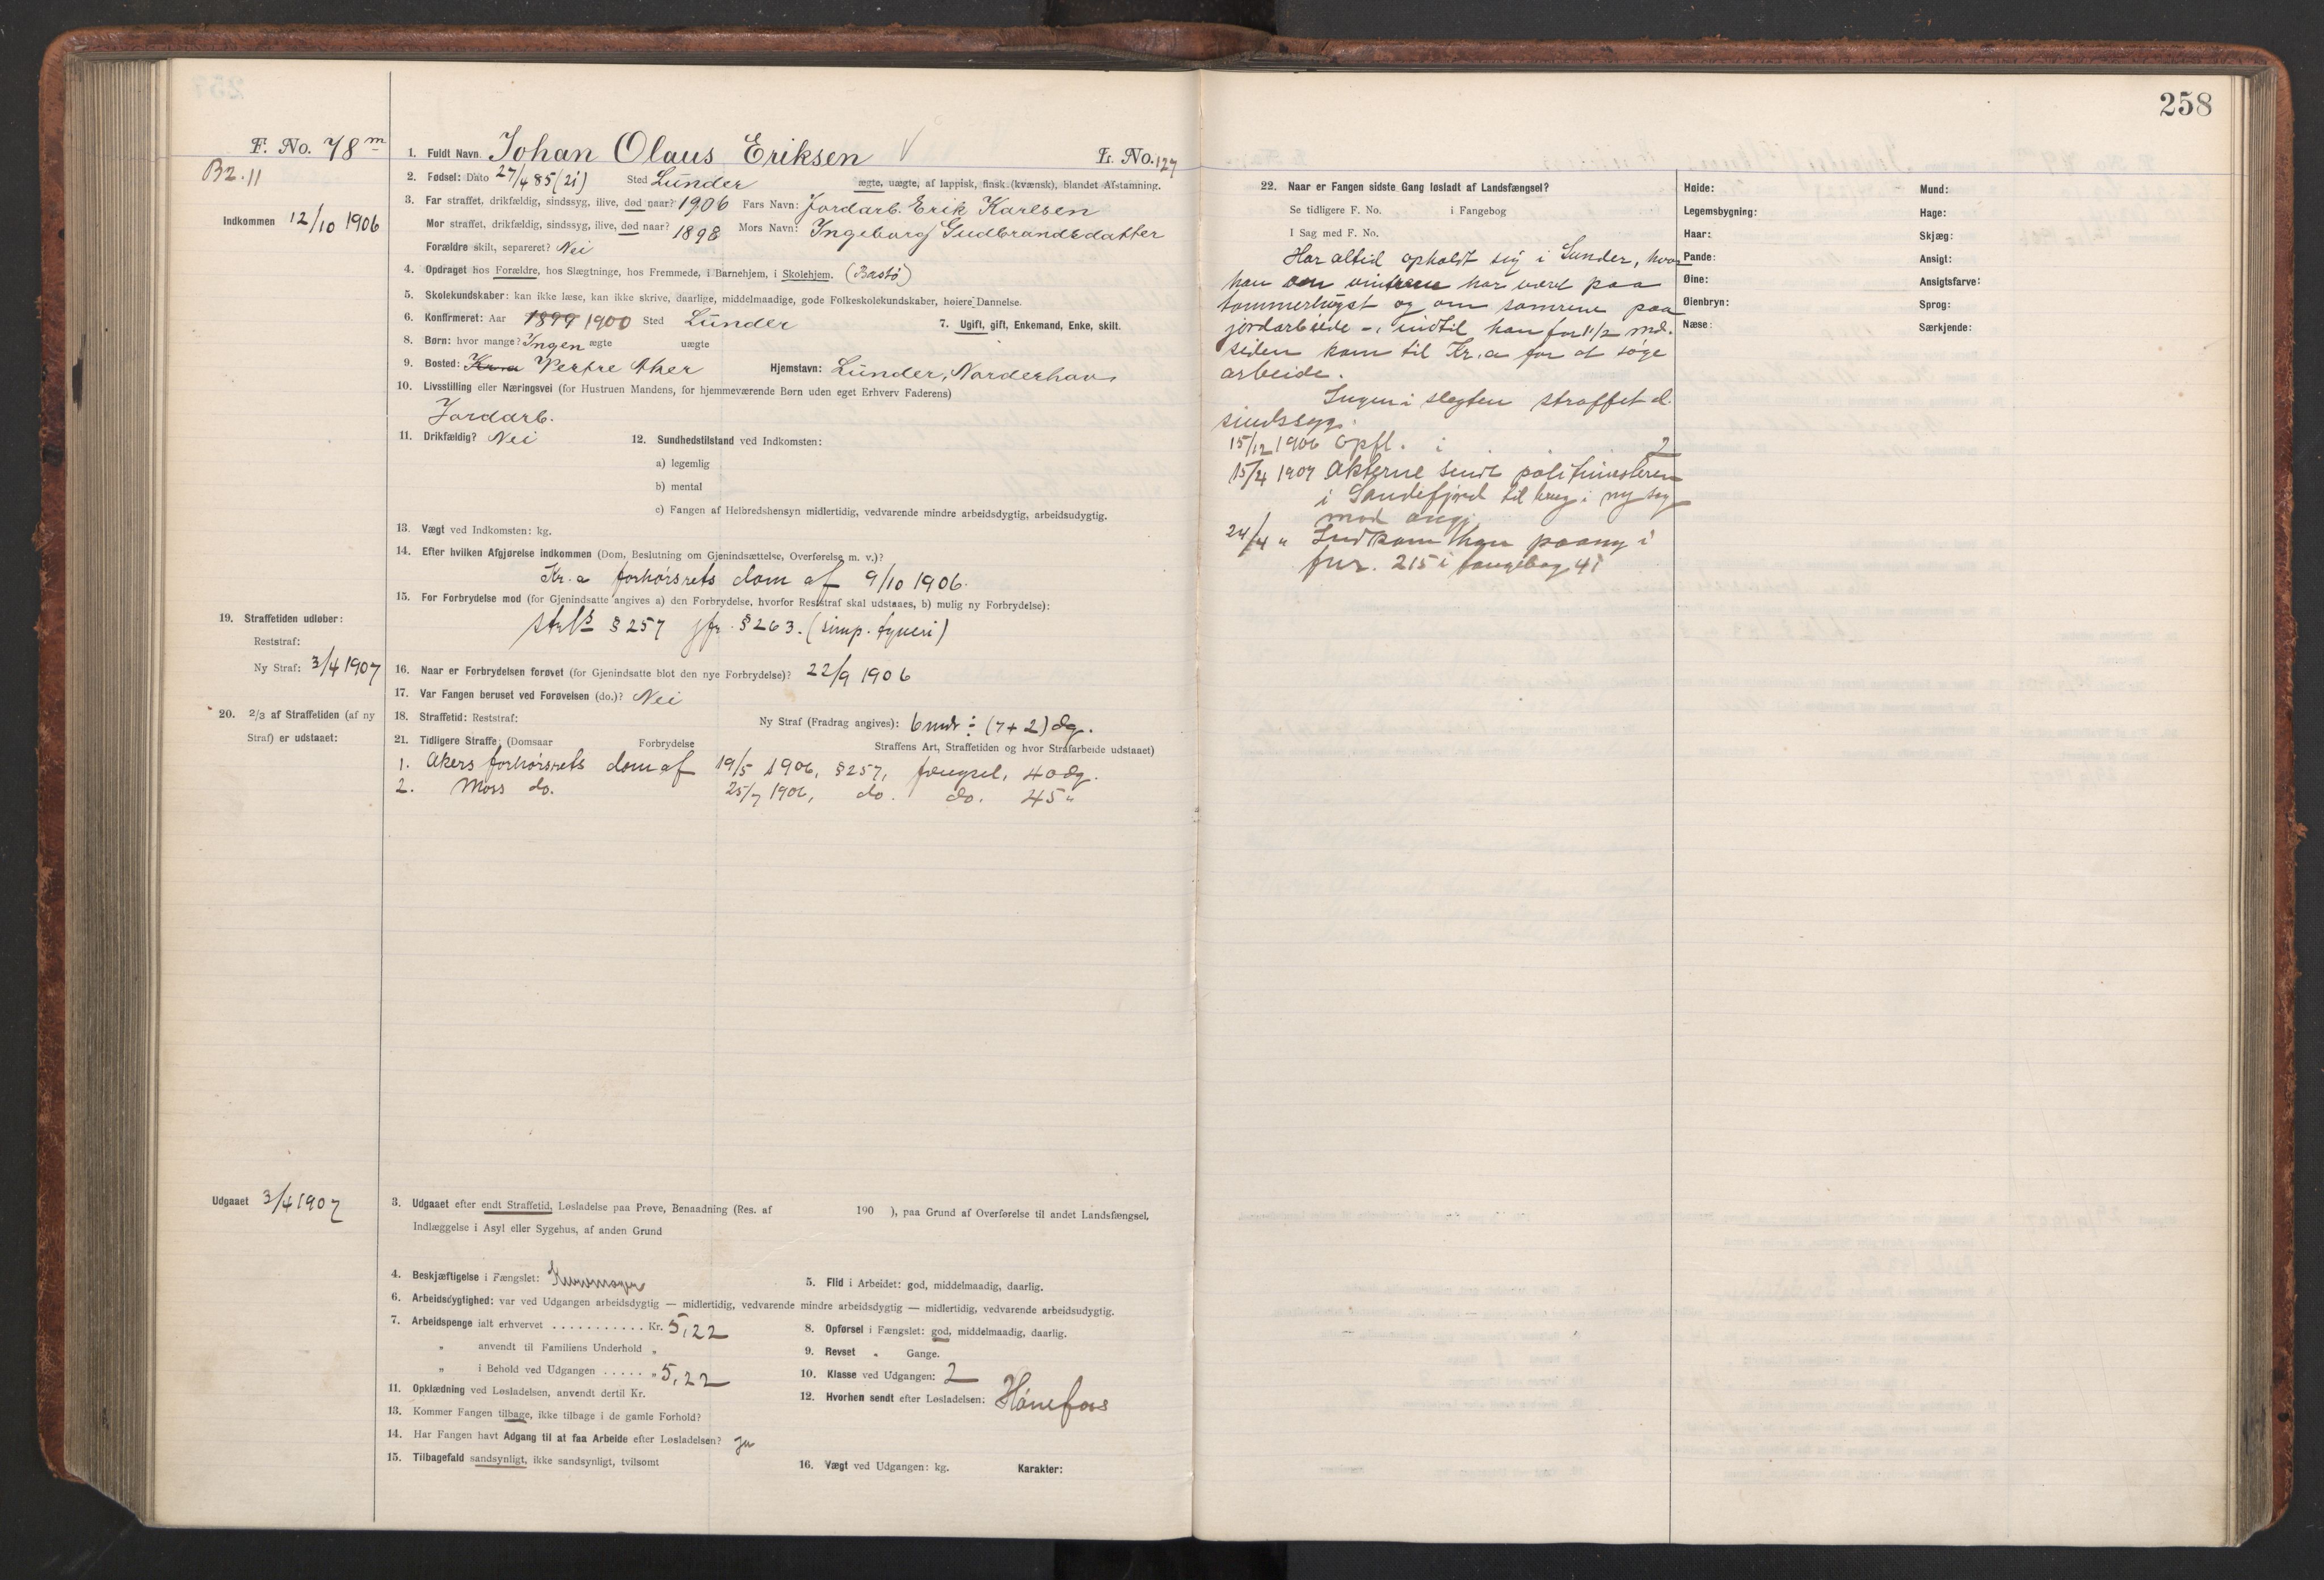 258
F. No. 78 m
B2.11
Indkommen 12/10 1906
1. Fuldt Navn Johan Olaus Eriksen V L. No. 127
2. Fødsel: Dato 27/4 85 (21) Sted Lunder ægte, uægte, af lappisk, finsk (kvænsk), blandet Afstamning.
3. Far straffet, drikfældig, sindssyg, ilive, død naar? 1906 Fars Navn: Jordarb. Erik Karlsen
Mor straffet, drikfældig, sindssyg, ilive, død naar? 1898 Mors Navn: Ingeborg Gudbrandsdatter
Forældre skilt, separeret? Nei
4. Opdraget hos Forældre, hos Slægtninge, hos Fremmede, i Barnehjem, i Skolehjem. (Bastø)
5. Skolekundskaber: kan ikke læse, kan ikke skrive, daarlige, middelmaadige, gode Folkeskolekundskaber, høiere Dannelse.
6. Konfirmeret: Aar 1899 1900 Sted Lunder 7. Ugift, gift, Enkemand, Enke, skilt.
8. Børn: hvor mange? Ingen ægte uægte
9. Bosted: Kr.a Vestre Aker Hjemstavn: Lunder, Norderhov
10. Livsstilling eller Næringsvei (for Hustruen Mandens, for hjemmeværende Børn uden eget Erhverv Faderens)
Jordarb.
11. Drikfældig? Nei 12. Sundhedstilstand ved Indkomsten:
a) legemlig
b) mental
c) Fangen af Helbredshensyn midlertidig, vedvarende mindre arbeidsdygtig, arbeidsudygtig.
13. Vægt ved Indkomsten: kg.
14. Efter hvilken Afgjørelse indkommen (Dom, Beslutning om Gjenindsættelse, Overførelse m. v.)?
Kr.a forhørsrets dom af 9/10 1906.
15. For Forbrydelse mod (for Gjenindsatte angives a) den Forbrydelse, hvorfor Reststraf skal udstaaes, b) mulig ny Forbrydelse):
§ 257 jfr. § 263. (simp. tyveri)
19. Straffetiden udløber:
Reststraf:
Ny Straf: 3/4 1907
16. Naar er Forbrydelsen forøvet (for Gjenindsatte blot den nye Forbrydelse)? 22/9 1906
17. Var Fangen beruset ved Forøvelsen (do.)? Nei
20. 2/3 af Straffetiden (af ny Straf) er udstaaet:
18. Straffetid: Reststraf: Ny Straf (Fradrag angives): 6 mdr ÷ (7+2) dg.
21. Tidligere Straffe: (Domsaar Forbrydelse Straffens Art, Straffetiden og hvor Strafarbeide udstaaet)
1. Akers forhørsrets dom af 19/5 1906, § 257, fængsel, 40 dg.
2. Moss do. 25/7 1906, do. do. 45 "
Udgaaet 3/4 1907
3. Udgaaet efter endt Straffetid, Løsladelse paa Prøve, Benaadning (Res. af 190 ), paa Grund af Overførelse til andet Landsfængsel,
Indlæggelse i Asyl eller Sygehus, af anden Grund
4. Beskjæftigelse i Fængslet: Kurvmager 5. Flid i Arbeidet: god, middelmaadig, daarlig.
6. Arbeidsdygtighed: var ved Udgangen arbeidsdygtig — midlertidig, vedvarende mindre arbeidsdygtig — midlertidig, vedvarende arbeidsudygtig.
7. Arbeidspenge ialt erhvervet ........... Kr. 5,22 8. Opførsel i Fængslet: god, middelmaadig, daarlig.
" anvendt til Familiens Underhold " 9. Revset " Gange.
" i Behold ved Udgangen ..... " 5,22 10. Klasse ved Udgangen: 2
11. Opklædning ved Løsladelsen, anvendt dertil Kr. 12. Hvorhen sendt efter Løsladelsen: Hønefos
13. Kommer Fangen tilbage, ikke tilbage i de gamle Forhold?
14. Har Fangen havt Adgang til at faa Arbeide efter Løsladelsen? ja
15. Tilbagefald sandsynligt, ikke sandsynligt, tvilsomt 16. Vægt ved Udgangen: kg. Karakter:
22. Naar er Fangen sidste Gang løsladt af Landsfængsel?
Se tidligere F. No. i Fangebog
I Sag med F. No.
Har altid opholdt sig i Lunder, hvor
han om vintrene har været paa
tømmerhugst og om somrene paa
jordarbeide -, indtil han for 1 1/2 md.
siden kom til Kr.a for at søge
arbeide.
Ingen i slegten straffet el.
sindssyg.
15/12 1906 opfl. i 2
15/4 1907 Akterne sendt politimesteren
i Sandefjord til brug i ny sag
mod angj.
24/4 " Indkom han paany i
fnr. 215 i fangebog 41
Høide: Mund:
Legemsbygning: Hage:
Haar: Skjæg:
Pande: Ansigt:
Øine: Ansigtsfarve:
Øienbryn: Sprog:
Næse: Særkjende: